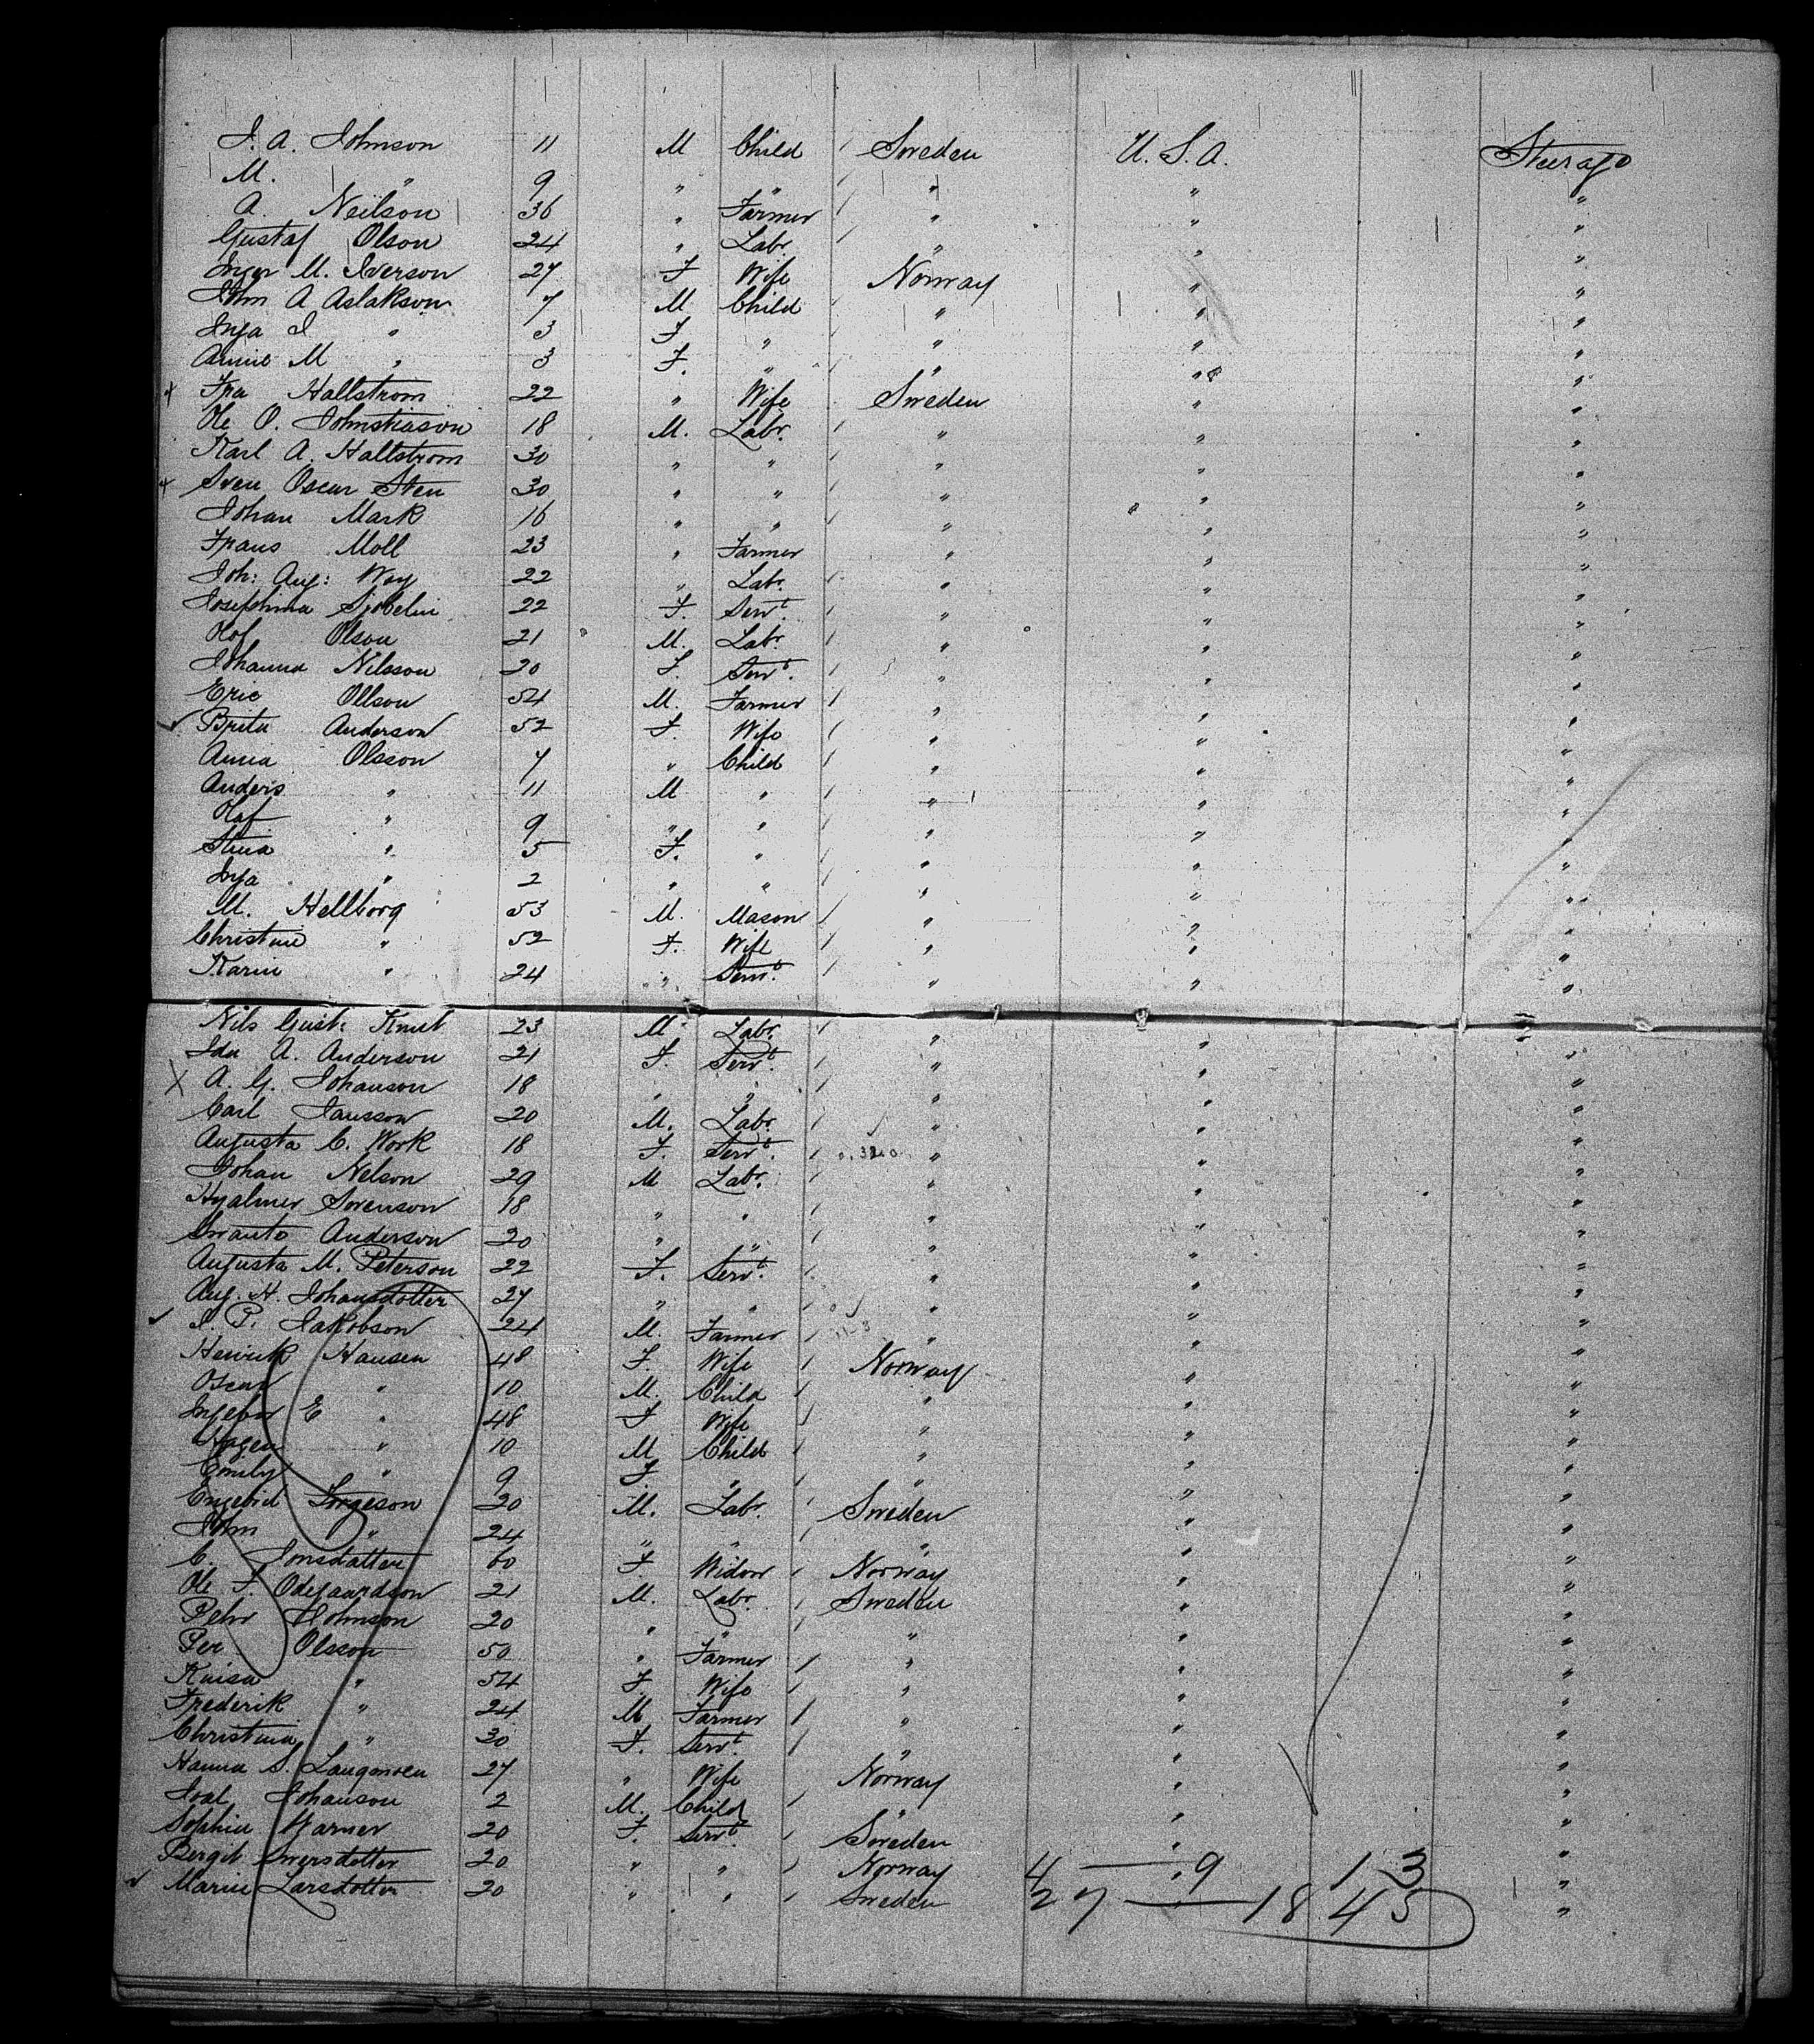 J. A. Johnson 11 M Child / Sweden U. S. A. Steerage
M. " 9 " " / " " "
A. Neilson 36 " Farmer / " " "
Gustaf Olson 24 " Labr / " " "
Inger M. Iverson 27 F Wife Norway " "
John A Aslakson 7 M Child / " " "
Inga I " 3 F " / " " "
Annie M " 3 F. " / " " "
+ Hallstrom 22 " Wife Sweden " "
Ole O. 18 M. Labr. / " " "
Karl A. Hallstrom 30 " " / " " "
+ Sven Oscar Sten 30 " " / " " "
Johan Mark 16 " " / " " "
Frans Moll 23 " Farmer " " "
Joh: Aug: Way 22 " Labr. / " " "
Josephina Sjobelin 22 F. Servt. / " " "
Olof Olson 21 M. Labr. / " " "
Johanna Nilsson 20 F. Servt. / " " "
Eric Ollson 54 M. Farmer / " " "
✓ Brita Anderson 52 F. Wife / " " "
Anna Olsson 7 " Child / " " "
Anders " 11 M " / " " "
Olof " 9 " " / " " "
Stina " 5 F. " / " " "
Inga " 2 " " / " " "
M. Hellborg 53 M. Mason / " " "
Christine " 52 F. Wife / " " "
Karin " 24 " Servt. / " " "
Nils Gust: Knut 23 M. Labr. / " " "
Ida A. Anderson 21 F. Servt. / " " "
X A. G. Johanson 18 " " / " " "
Carl Jansson 20 M. Labr. / " " "
Augusta C. Work 18 F. Servt. / " " "
Johan Nelson 29 M Labr. / " " "
Hyalmer Sorenson 18 " " / " " "
Swante Anderson 20 " " / " " "
Augusta M. Peterson 22 F. Servt. / " " "
Aug. H. Johansdotter 27 " " / " " "
✓ J. P. Jakobson 24 M. Farmer / " " "
Hansen 48 F. Wife / Norway " "
Oscar " 10 M. Child / " " "
Ingebor E " 48 F Wife / " " "
Hagen " 10 M Child / " " "
Emily " 9 F " / " " "
Torgeson 20 M. Labr. / Sweden " "
John " 24 " " / " " "
C. Jonsdatter 60 F Widow / Norway " "
Ole F. Odegaardson 21 M. Labr. / Sweden " "
Pehr Johnson 20 " " / " " "
Per Olsson 50 " Farmer / " " "
Kaisa " 54 F Wife / " " "
Frederik " 24 M Farmer / " " "
Christina " 30 F. Servt. / " " "
Hanna S. 27 " Wife / Norway " "
Johanson 2 M. Child / " " "
Sophia Warner 20 F. Servt. / Sweden " "
Bergit 20 " " / Norway " "
✓ Marie Larsdotter 20 " " / Sweden "
4 — 9 13
27 — 18 45